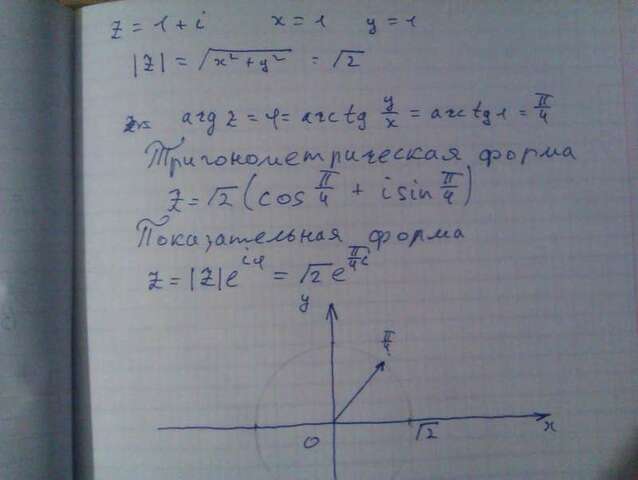 z = 1 + i x = 1 y = 1
|z| = √(x² + y²) = √2
arg z = φ = arctg y/x = arctg 1 = π/4
Тригонометрическая форма
z = √2 (cos π/4 + i sin π/4)
Показательная форма
z = |z| e^(iφ) = √2 e^(π/4 i)
y
π/4
0 √2 x